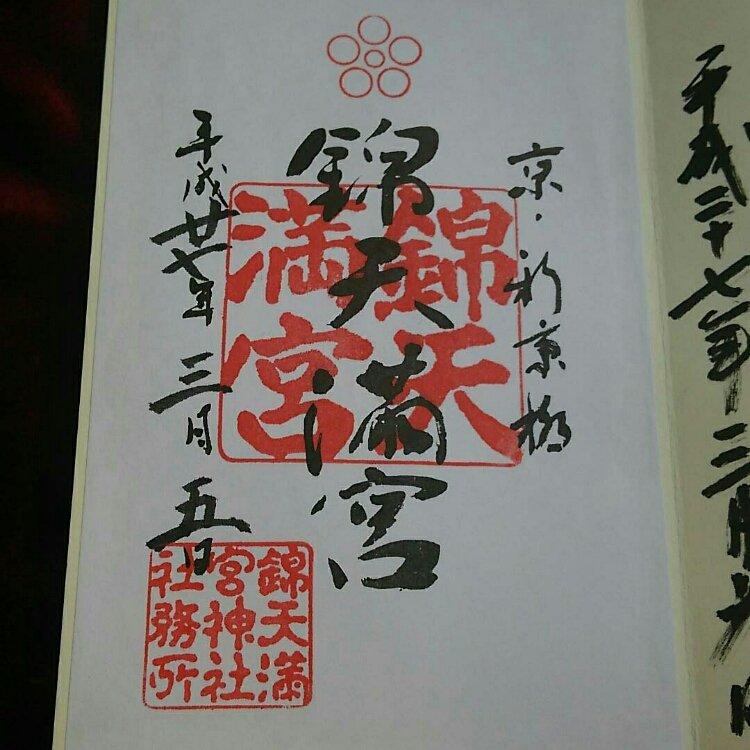 京・新京極
錦天満宮
錦天
満宮
平成廿七年三月五日
錦天満
宮神社
社務所
平成二十七年三月六日